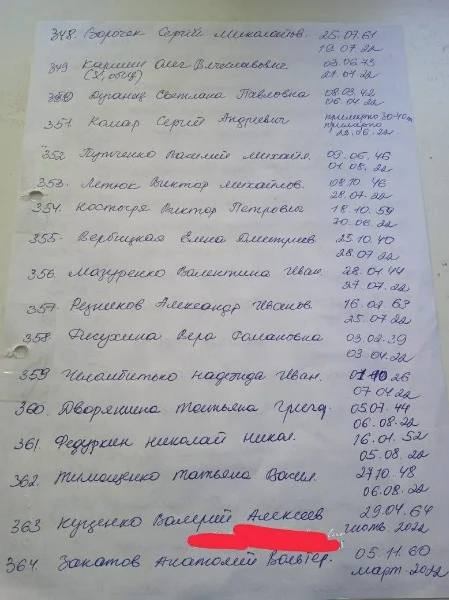 348. Ворочек Сергій Миколайов. 25.07.61
19.07.22
349 Олег Вячеславовис 03.06.73
21.04.22
350 Светлана Павловна 08.03.42
06.04.22
351. Комар Сергій Андріевич примерно 30-40л
примарно
22.06.22
352 Василий Михайл. 09.06.46
01.08.22
353. Летюк Виктор Михайлов. 08.10.46
28.07.22
354. Костогря Виктор Петровиы 18.10.59
30.06.22
355. Вербицкая Елена Дмитриев. 25.10.40
28.07.22
356. Мазуренко Валентина Иван. 28.01.44
27.07.22
357. Резников Александр Иванов. 16.02.63
25.07.22
358. Вера Романовна 03.02.39
03.04.22
359 Надежда Иван. 26
07.04.22
360. Дворянина Татьяна Григор. 05.07.44
06.08.22
361. Федуркин Николай Никол. 16.01.52
05.08.22
362. Тимощенко Татьяна Васил. 27.10.48
06.08.22
363 Куценко Валерий Алексеев 29.04.64
2022
364. Закатов Анатолий Вольтер. 05.11.60
март. 2022